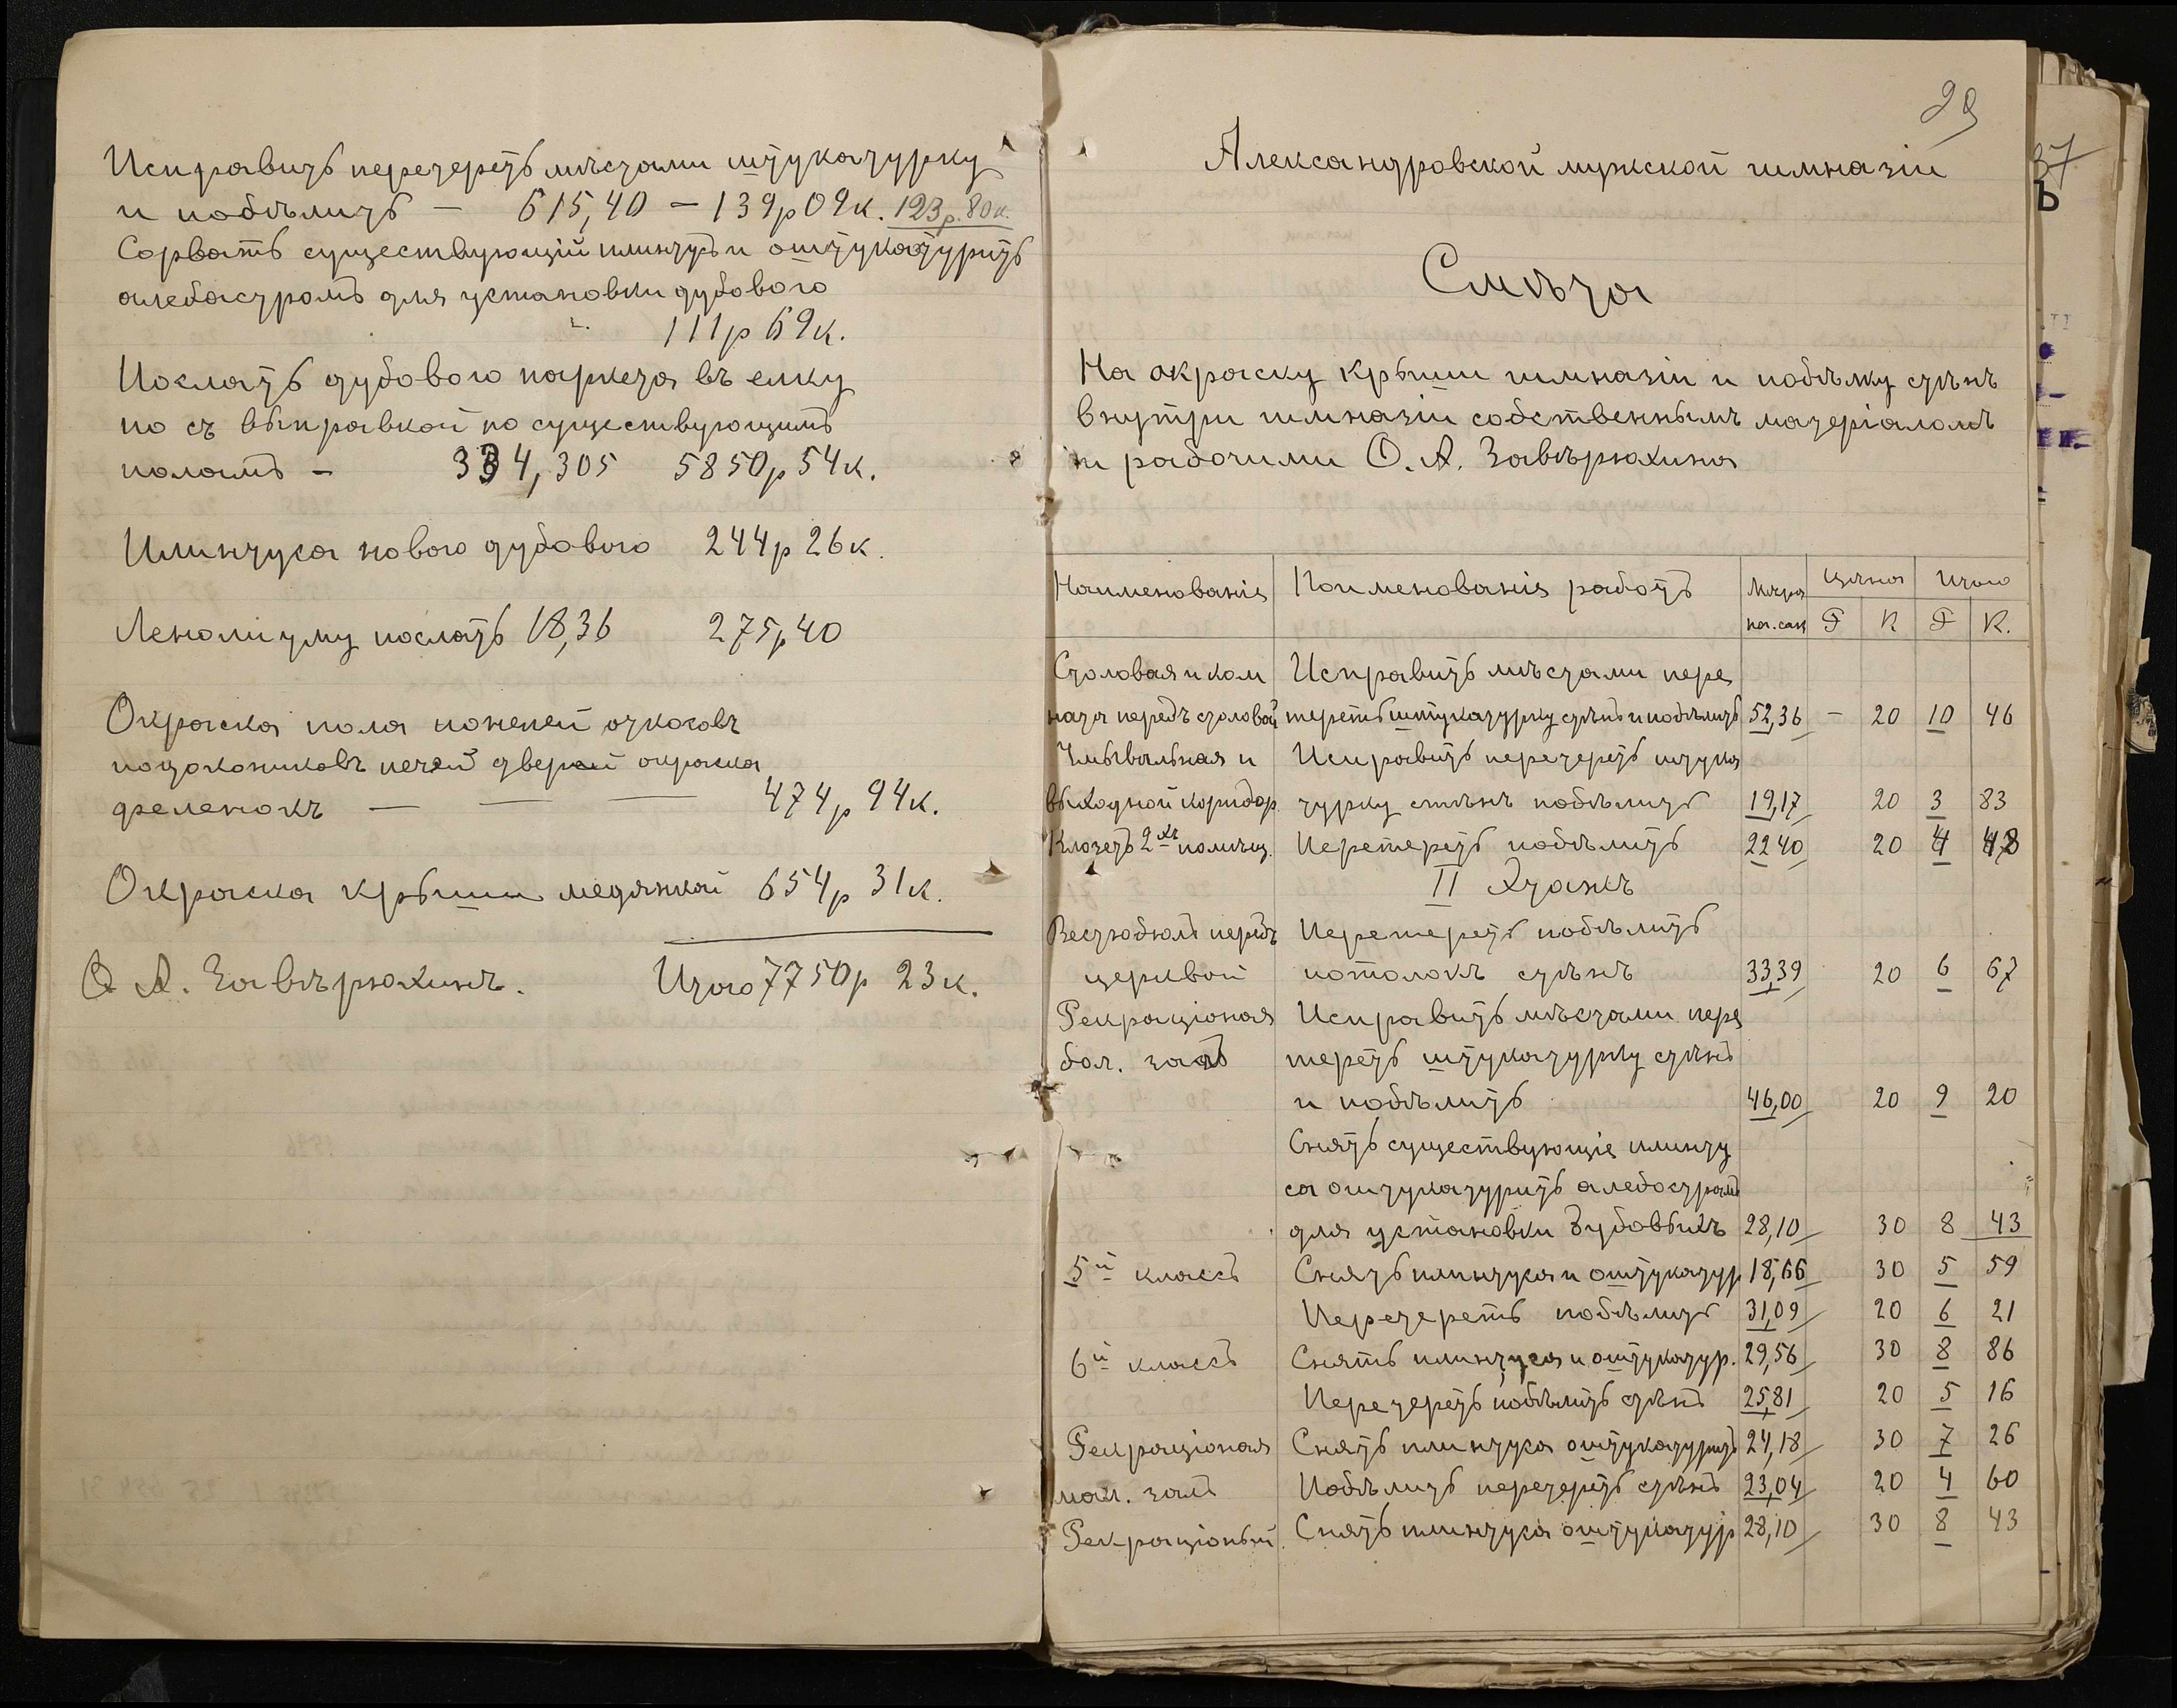 Исправить перетереть мѣстами штукатурку
и побѣлить — 615,40 — 139р 09к. 123р. 80к.
Сорвать существующій плинтусъ и оштукатурить
алебастромъ для установки дубового
111р 69к.
Послать дубового паркета въ елку
по съ выправкой по существующимъ
поламъ — 334,305 5850р 54к.
Плинтуса нового дубового 244р 26к.
Леномиуму послать 18,36 275р 40
Окраска пола понелей откосовъ
подоконниковъ печей дверей окраска
филенокъ — — — 474р 94к.
Окраска крыши медянкой 654р 31к.
О. А. Завѣрюхинъ. Итого 7750р 23к.
29
Александровской мужской гимназіи
Смѣта
На окраску крыши гимназіи и побѣлку стѣнъ
внутри гимназіи собственнымъ матеріаломъ
и рабочими О. А. Завѣрюхина
Наименованіе Поименованіе работъ Мѣра Цѣна Итого
пог. саж Р К Р К.
Столовая и ком Исправить мѣстами пере
ната передъ столовой тереть штукатурку стѣнъ и побѣлить 52,36 — 20 10 46
Умывальная и Исправить перетереть штука
выходной коридор. турку стѣнъ побѣлить 19,17 20 3 83
Клозетъ 2хъ помѣщ. Перетереть побѣлить 22 40 20 4 48
II Этажъ
Вестюбюлъ передъ Перетереть побѣлить
церквой потолокъ стѣнъ 33,39 20 6 67
Рекраціоная Исправить мѣстами пере
бол. залъ тереть штукатурку стѣнъ
и побѣлить 46,00 20 9 20
Снять существующіе плинту
са оштукатурить алебостромъ
для установки дубовыхъ 28,10 30 8 43
5й классъ Снять плинтуса и оштукатур 18,66 30 5 59
Перетереть побѣлить 31,09 20 6 21
6й классъ Снять плинтуса и оштукатур. 29,56 30 8 86
Перетереть побѣлить стѣнъ 25,81 20 5 16
Рекраціоная Снять плинтуса оштукатурить 24,18 30 7 26
мал. залъ Побѣлить перетереть стѣнъ 23,04 20 4 60
Рекраціоный Снять плинтуса оштукатур 28,10 30 8 43
37